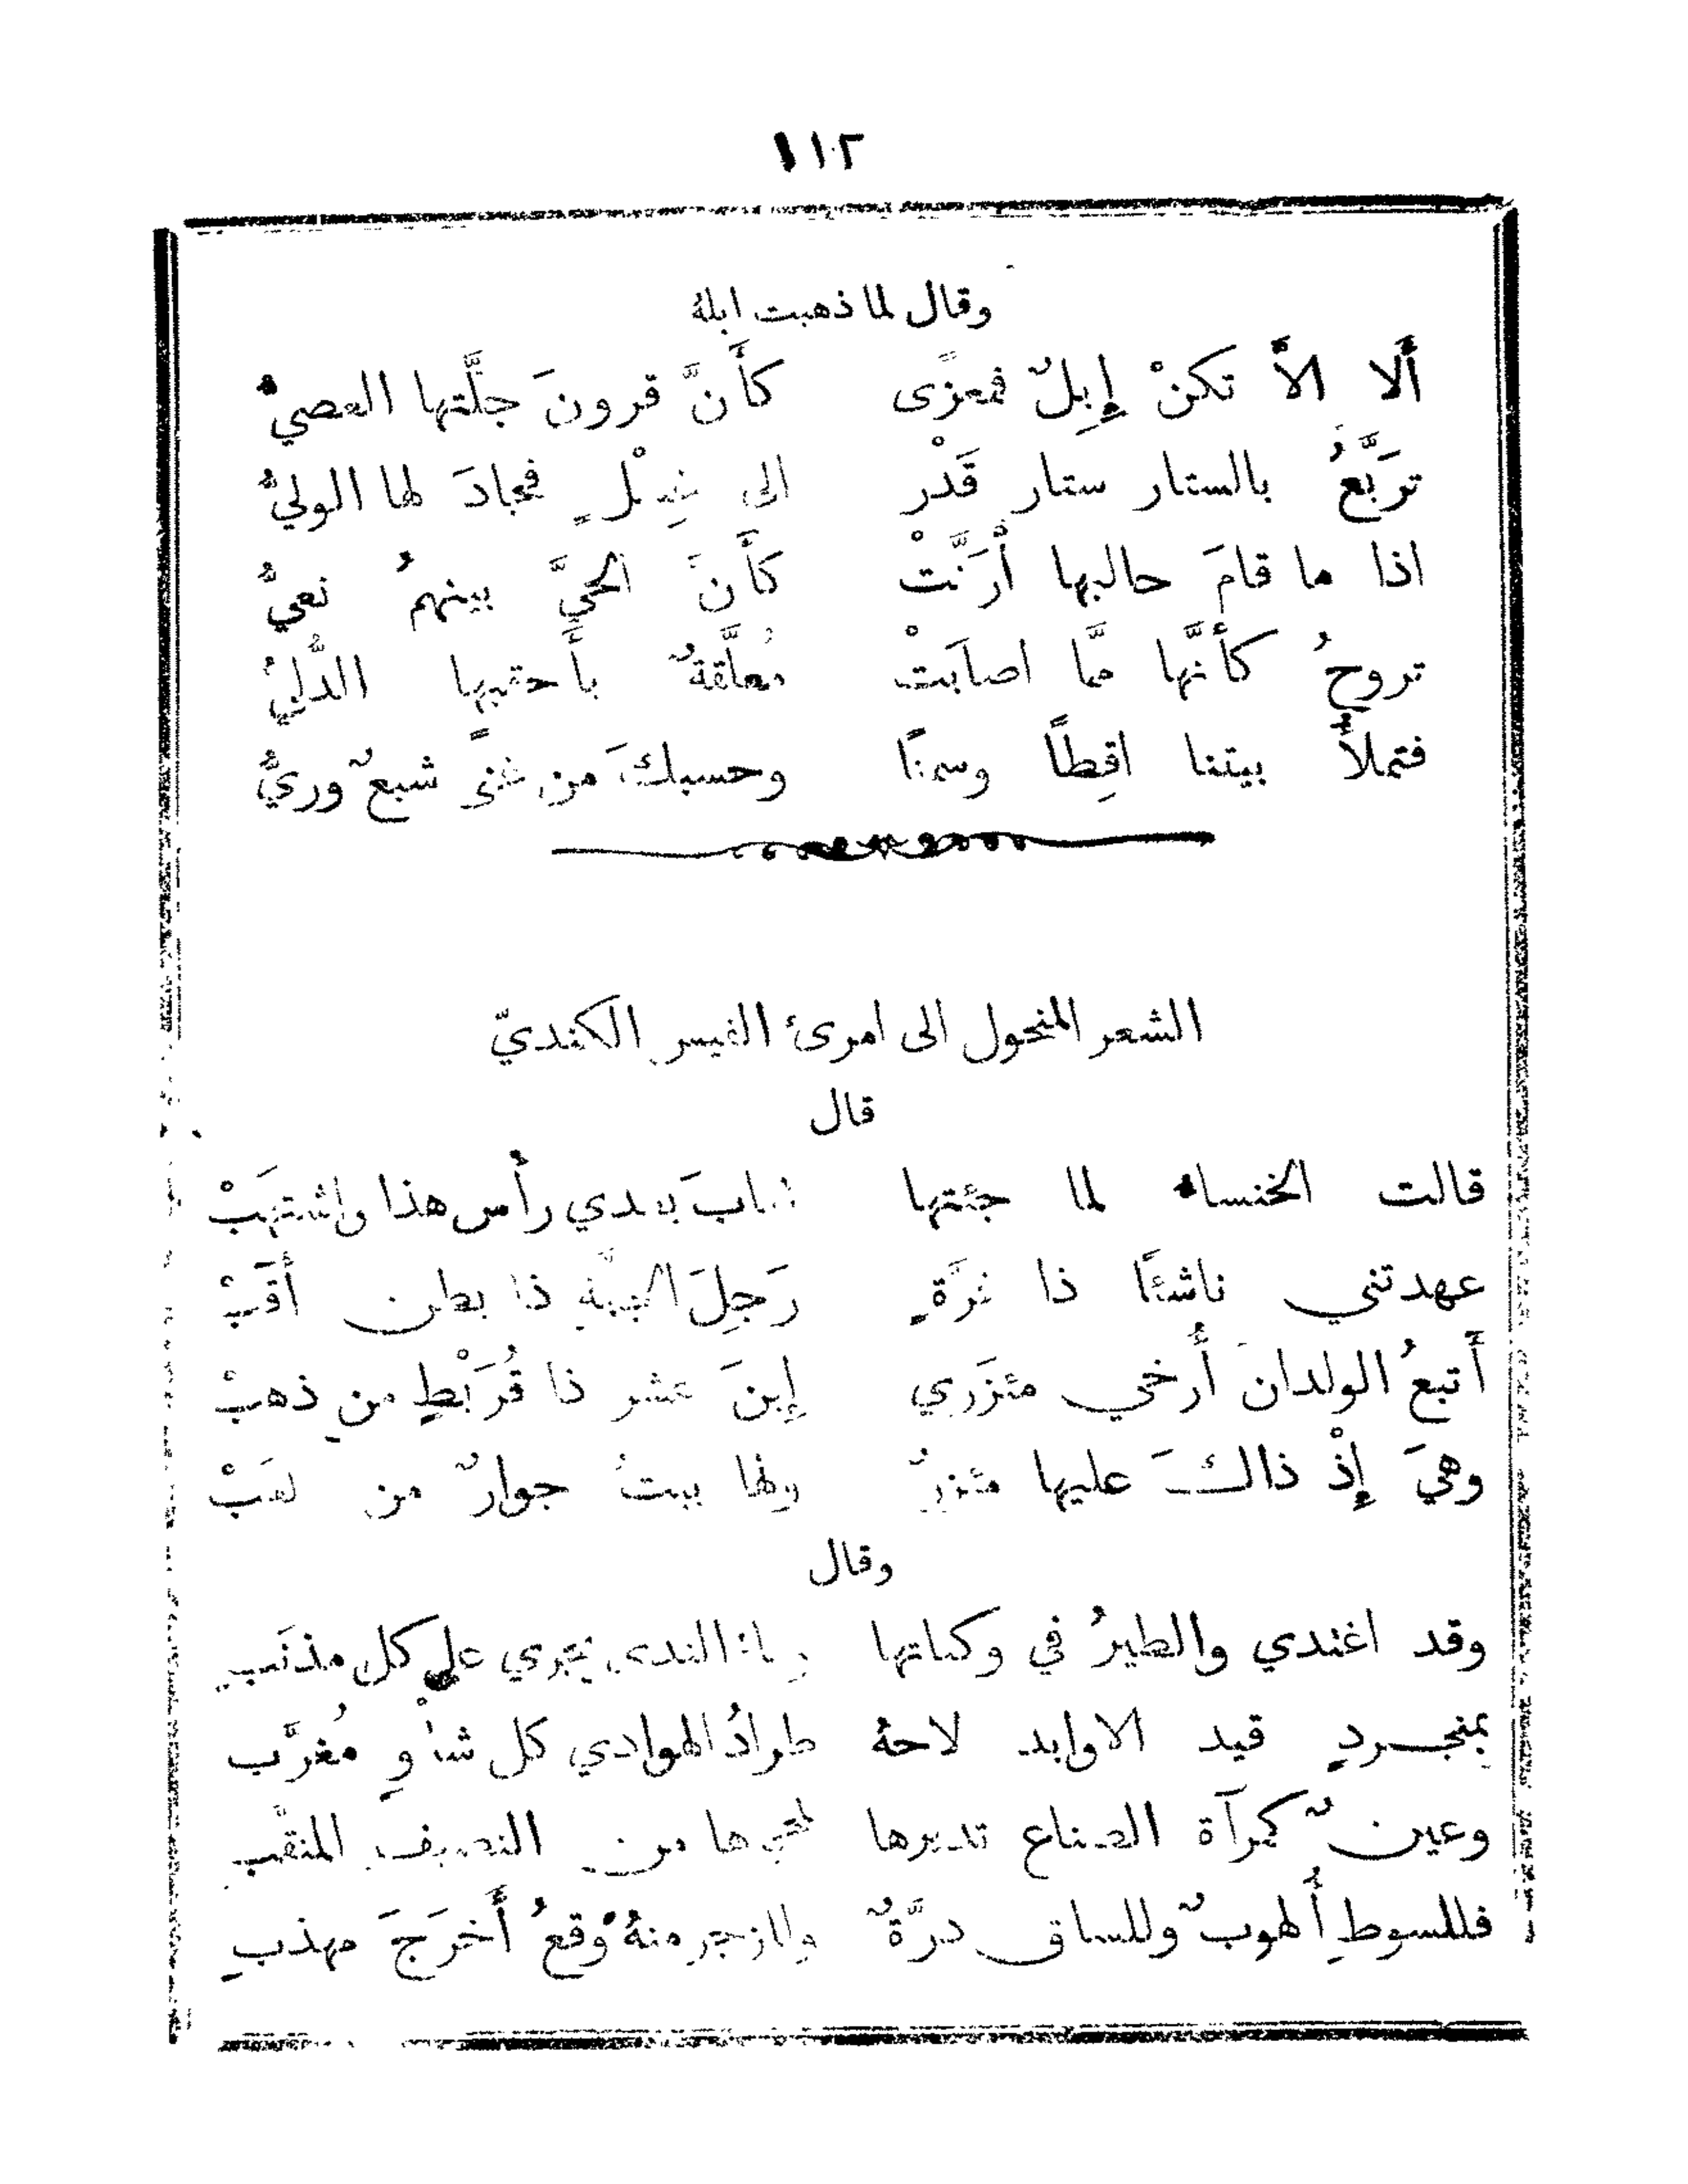 ١١٢
وقال لما ذهبت ابلهُ
أَلا الاَّ تكنْ إِبِلٌ فمعزًى كأَنَّ قرونَ جلَّتها العصيُّ
تربَّعُ بالستار ستار قَدْر الى غِسْلٍ فجادَ لها الوليُّ
اذا ما قامَ حالبها أَرَنَّتْ كأَنَّ الحيَّ بينهمُ نعيُّ
تروحُ كأَنَّها ممَّا اصابَتْ مُعلَّقةٌ بأَحقيها الدُّليُّ
فتملأُ بيتنا اقِطاً وسمنًا وحسبكَ من غنًى شبعٌ وريُّ
الشعر المنحول الى امرئ القيس الكنديّ
قال
قالت الخنساء لما جئتها شابَ بعدي رأس هذا واشتهَبْ
عهدتني ناشئًا ذا غرَّةٍ رَجِلَ الجمَّةِ ذا بطن أَقَبْ
أَتبعُ الولدانَ أُرخي مئزَري إِبنَ عشر ذا قُرَيْطٍ من ذهبْ
وهيَ إِذْ ذاكَ عليها مئزرٌ ولها بيتُ جوارٌ من لعَبْ
وقال
وقد اغتدي والطيرُ في وكناتها وماءُ الندى يجري على كل مذنَب
بمنجردٍ قيد الاوابد لاحهُ طرادُ الهوادي كل شأْوٍ مُغرَّب
وعينٌ كمرآة الصناع تديرها لمحجرها من النصيف المنقَّب
فللسوطِ أُلهوبٌ وللساق درَّةٌ وللزجر منهُ وقعُ أَخرَجَ مهذبِ